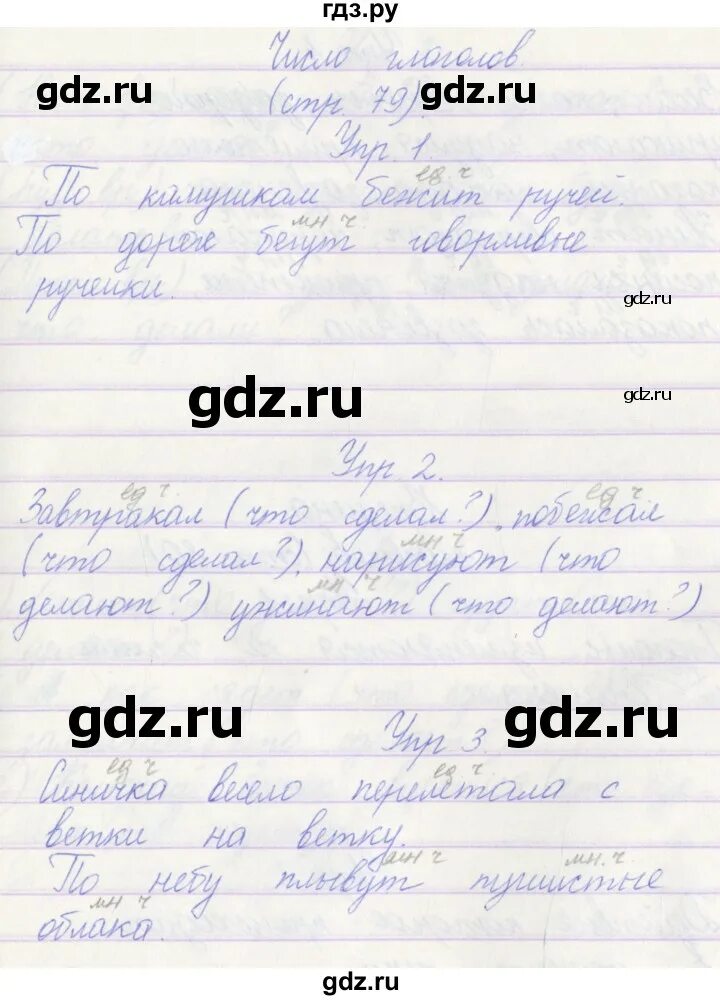 гдз.ру
Число глаголов.
gdz.ru
(стр. 79).
gdz.ru
Упр. 1.
ед ч
По камушкам бежит ручей.
мн ч
По дороге бегут говорливые
ручейки.
gdz.ru
gdz.ru
gdz.ru
Упр 2.
ед ч. ед ч
Завтракал (что сделал?), побежал
мн ч
(что сделал?), нарисуют (что
мн ч
делают?) ужинают (что делают?)
gdz.ru
gdz.ru
Упр 3
ед ч ед ч.
Синичка весело перелетала с
ветки на ветку.
мн ч мн. ч.
По небу плывут пушистые
мн ч
облака.
gdz.ru